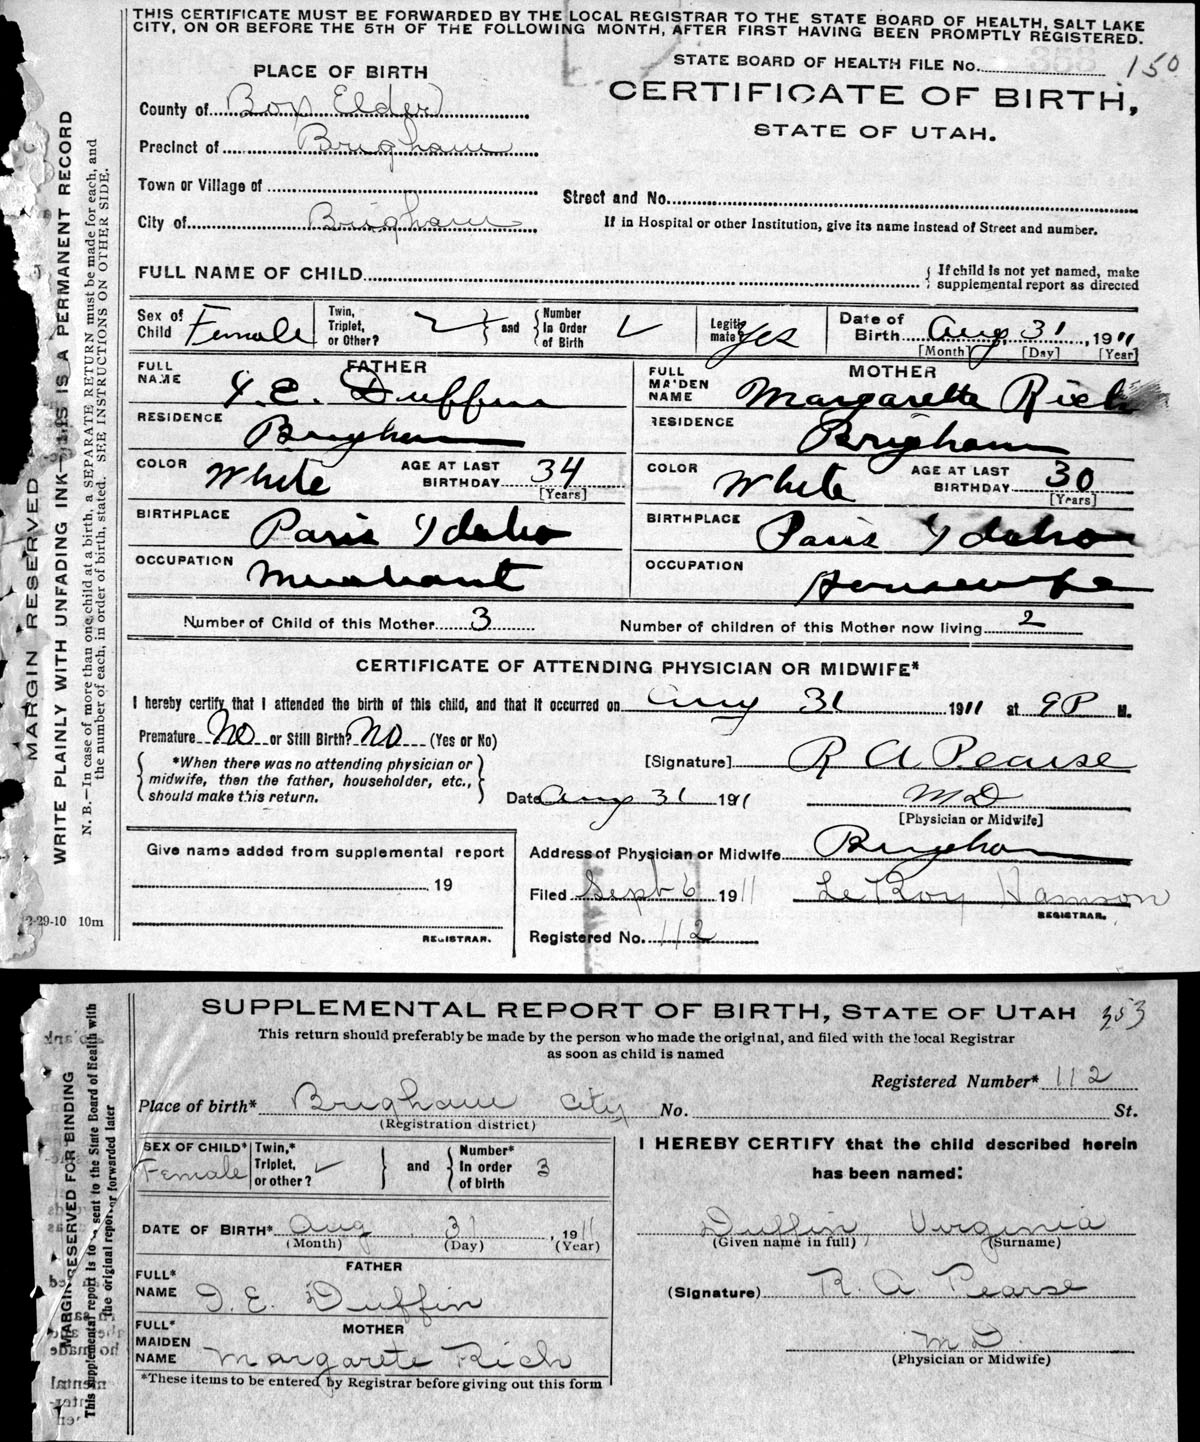 THIS CERTIFICATE MUST BE FORWARDED BY THE LOCAL REGISTRAR TO THE STATE BOARD OF HEALTH, SALT LAKE
CITY, ON OR BEFORE THE 5TH OF THE FOLLOWING MONTH, AFTER FIRST HAVING BEEN PROMPTLY REGISTERED.
STATE BOARD OF HEALTH FILE No. 150
CERTIFICATE OF BIRTH,
STATE OF UTAH.
PLACE OF BIRTH
County of Box Elder
Precinct of Brigham
Town or Village of
City of Brigham
Street and No.
If in Hospital or other Institution, give its name instead of Street and number.
FULL NAME OF CHILD
If child is not yet named, make
supplemental report as directed
Sex of Child Female Twin, Triplet, or Other? and Number In Order of Birth Legitimate? Yes Date of Birth Aug. 31, 1911
[Month] [Day] [Year]
FATHER
FULL NAME I. E. Duffin
RESIDENCE Brigham
COLOR White AGE AT LAST BIRTHDAY 34
[Years]
BIRTHPLACE Paris Idaho
OCCUPATION Merchant
MOTHER
FULL MAIDEN NAME Margaretta Rich
RESIDENCE Brigham
COLOR White AGE AT LAST BIRTHDAY 30
[Years]
BIRTHPLACE Paris Idaho
OCCUPATION Housewife
Number of Child of this Mother 3 Number of children of this Mother now living 2
CERTIFICATE OF ATTENDING PHYSICIAN OR MIDWIFE*
I hereby certify that I attended the birth of this child, and that it occurred on Aug 31 1911 at 9P M.
Premature No or Still Birth? No (Yes or No)
*When there was no attending physician or
midwife, then the father, householder, etc.,
should make this return.
[Signature] R A Pearse
Date Aug 31 1911 M D
[Physician or Midwife]
Give name added from supplemental report
19
REGISTRAR.
Address of Physician or Midwife Brigham
Filed Sept 6 1911 LeRoy Hamson
REGISTRAR.
Registered No. 112
MARGIN RESERVED
WRITE PLAINLY WITH UNFADING INK—THIS IS A PERMANENT RECORD
N. B.—In case of more than one child at a birth, a SEPARATE RETURN must be made for each, and
the number of each, in order of birth, stated. SEE INSTRUCTIONS ON OTHER SIDE.
2-29-10 10m
SUPPLEMENTAL REPORT OF BIRTH, STATE OF UTAH 353
This return should preferably be made by the person who made the original, and filed with the local Registrar
as soon as child is named
Registered Number* 112
Place of birth* Brigham City No. St.
(Registration district)
SEX OF CHILD* Female Twin,* Triplet, or other? and Number* In order of birth 3
DATE OF BIRTH* Aug 31, 1911
(Month) (Day) (Year)
FATHER
FULL* NAME I. E. Duffin
MOTHER
FULL* MAIDEN NAME Margarete Rich
*These items to be entered by Registrar before giving out this form
I HEREBY CERTIFY that the child described herein
has been named:
Duffin, Virginia
(Given name in full) (Surname)
(Signature) R. A. Pearse
M D.
(Physician or Midwife)
MARGIN RESERVED FOR BINDING
This supplemental report is to be sent to the State Board of Health with
the original report or forwarded later